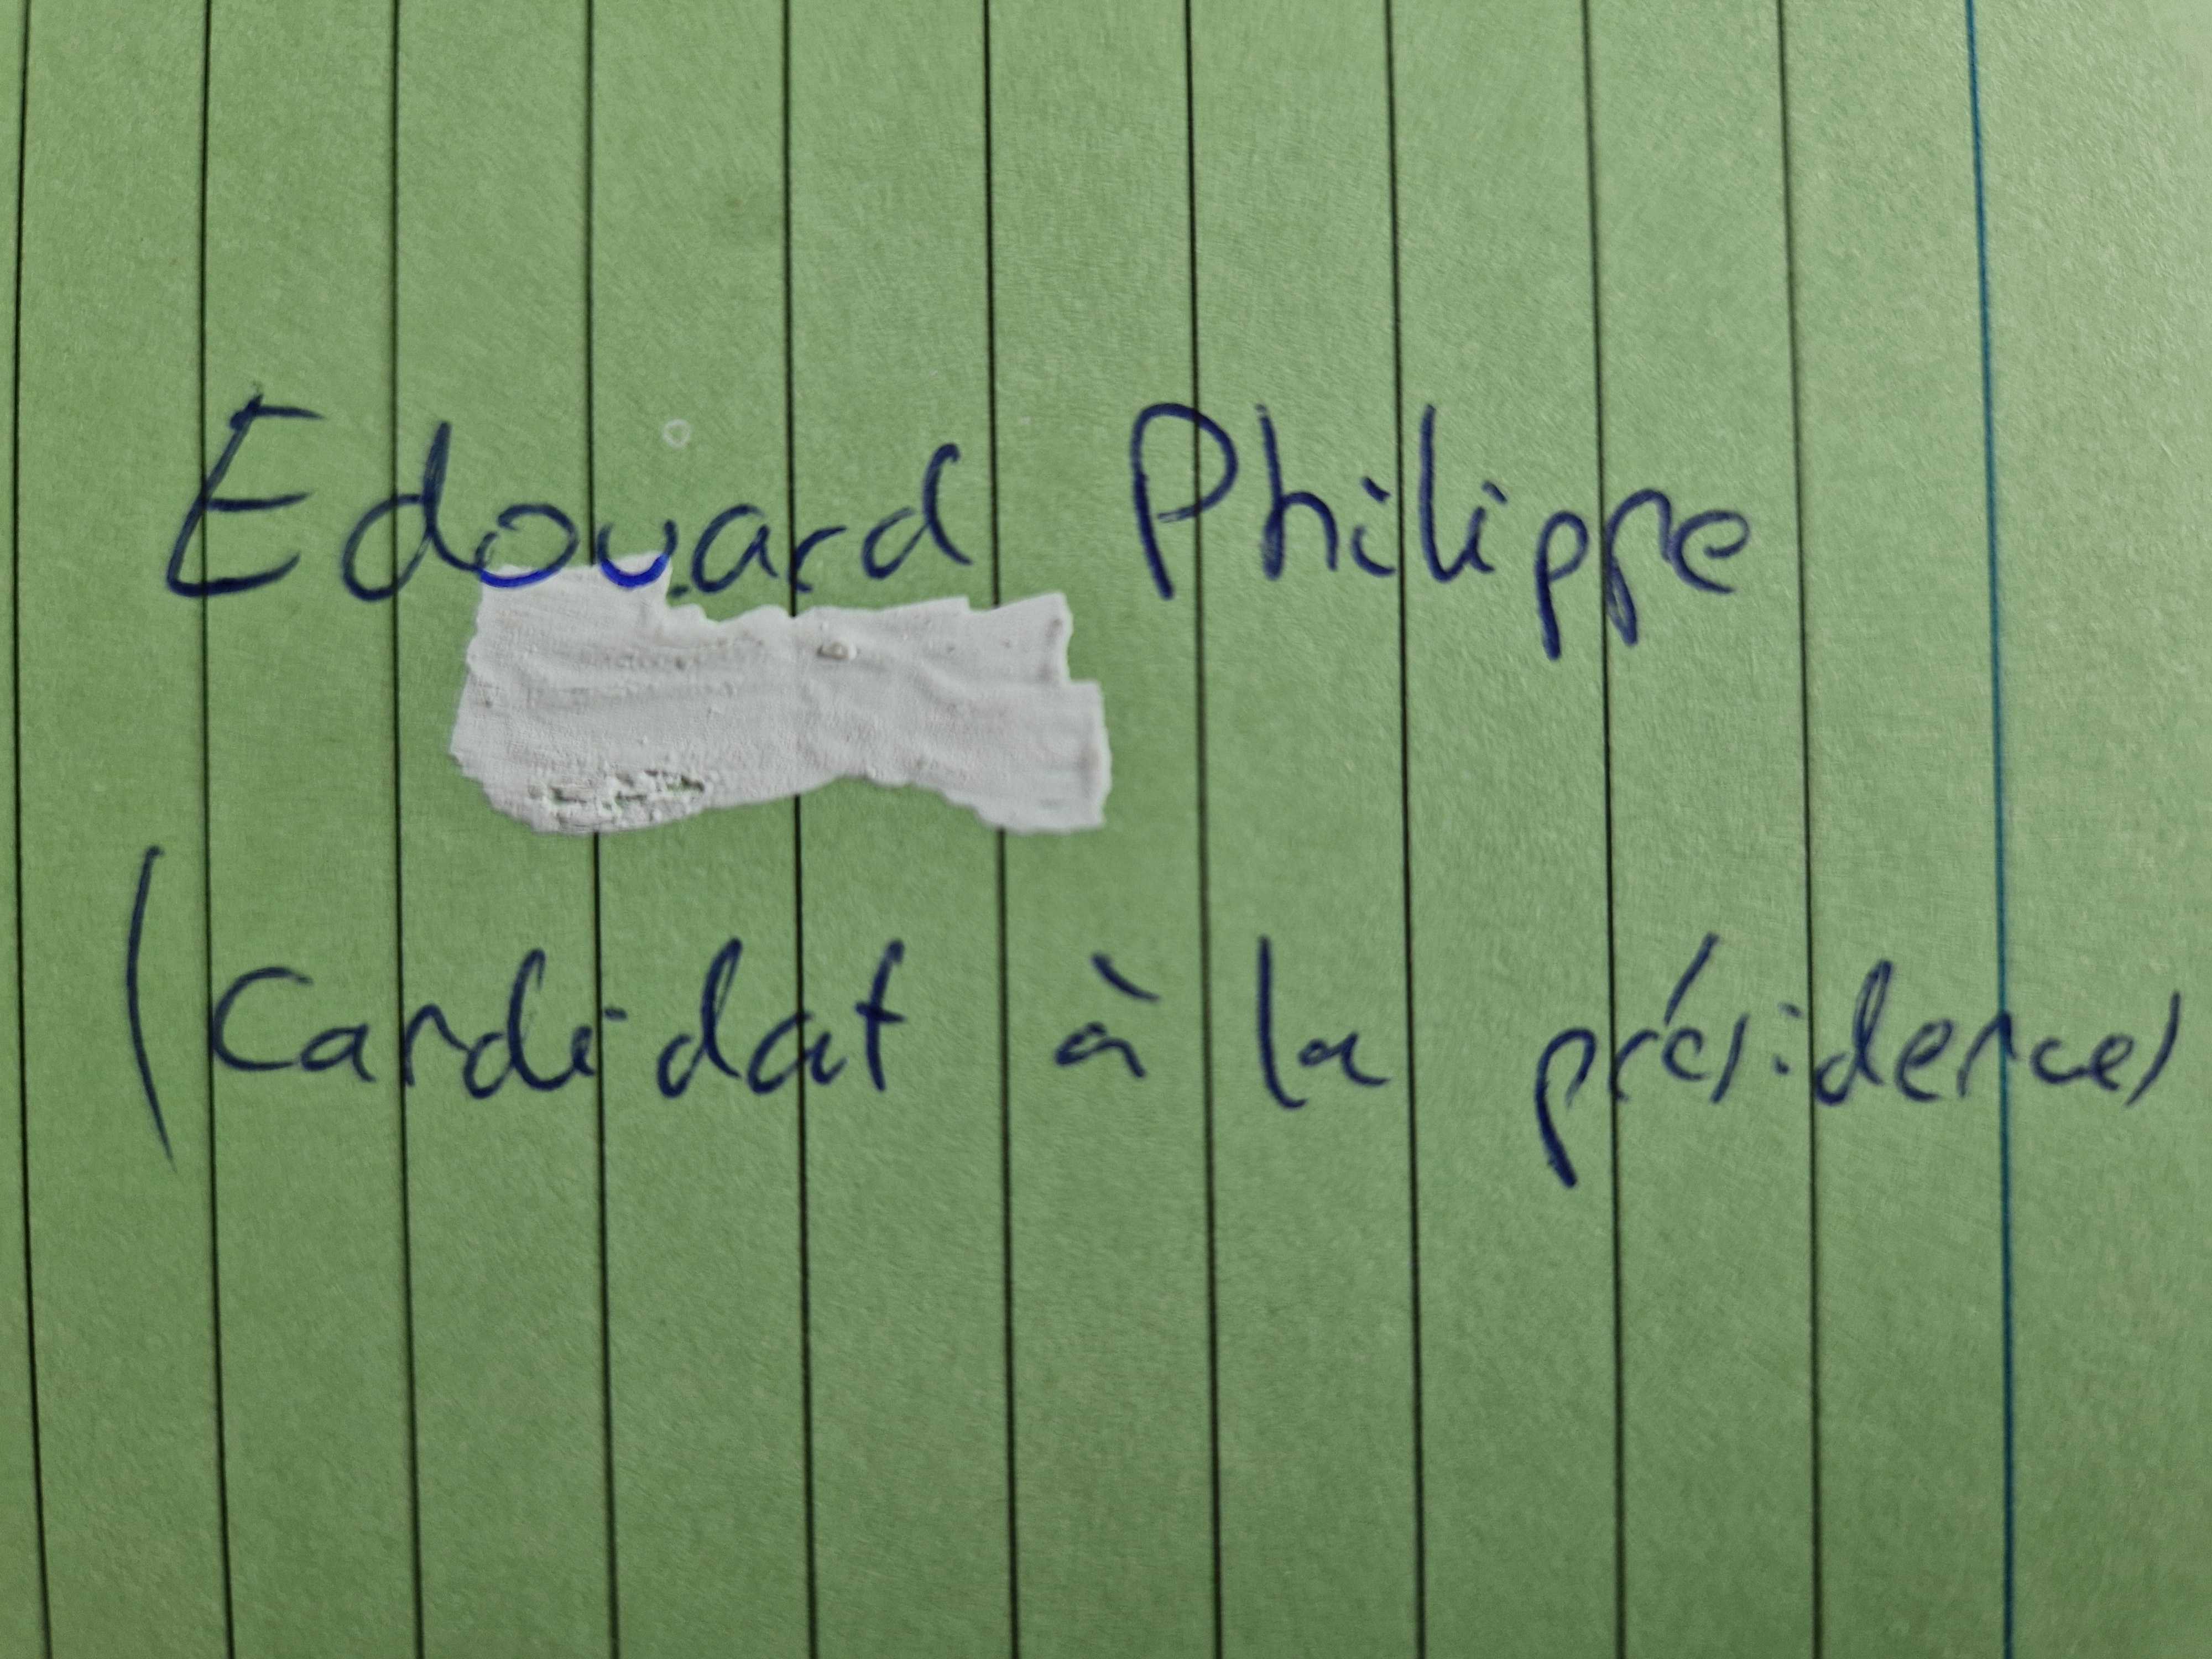 Edouard Philippe
(Candidat à la présidence)